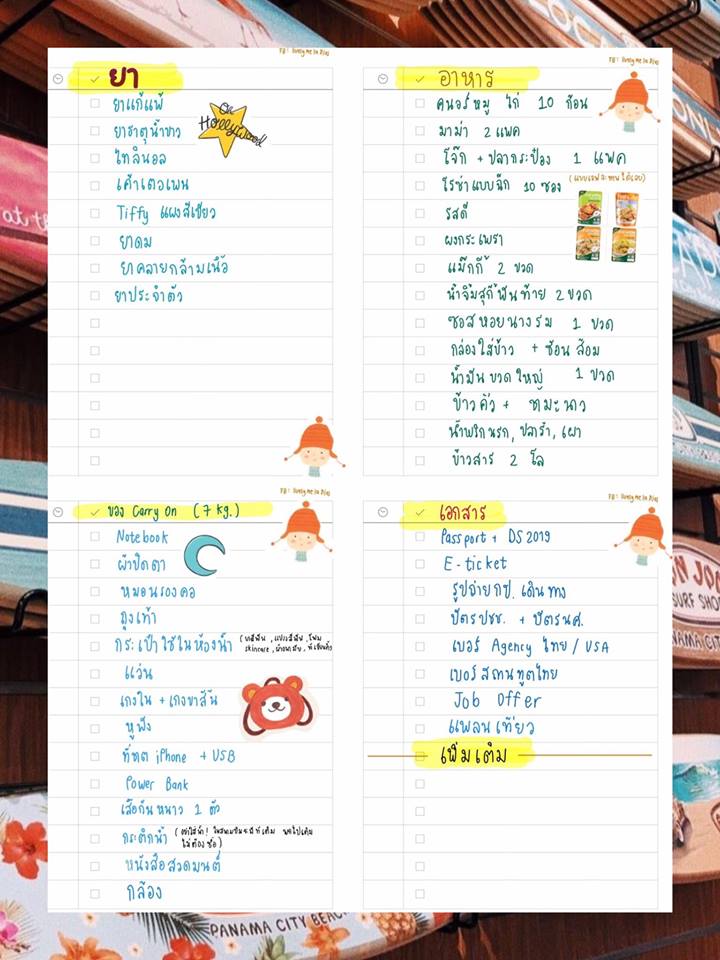 FB: lonely me in Dlas
ยา
ยาแก้แพ้
ยาธาตุน้ำขาว
ไทลินอล
เค้าเตอเพน
Tiffy แผงสีเขียว
ยาดม
ยาคลายกล้ามเนื้อ
ยาประจำตัว
Oh Hollywood
อาหาร
คนอร์หมู ไก่ 10 ก้อน
มาม่า 2 แพค
โจ๊ก + ปลากระป๋อง 1 แพค
โรซ่าแบบฉีก 10 ซอง
รสดี
ผงกระเพรา
แม๊กกี้ 2 ขวด
น้ำจิ้มสุกี้พันท้าย 2 ขวด
ซอสหอยนางรม 1 ขวด
กล่องใส่ข้าว + ช้อนส้อม
น้ำมันขวดใหญ่ 1 ขวด
ข้าวคั่ว + ชามะนาว
น้ำพริกนรก, ปลาร้า, เผา
ข้าวสาร 2 โล
ของ Carry On (7 kg.)
Notebook
ผ้าปิดตา
หมอนรองคอ
ถุงเท้า
กระเป๋าใช้ในห้องน้ำ (ยาสีฟัน, แปรงสีฟัน, โฟม
skincare
แว่น
เกงใน + เกงขาสั้น
หูฟัง
ที่ชาต iPhone + USB
Power Bank
เสื้อกันหนาว 1 ตัว
กระติกน้ำ (อย่าใส่น้ำ! ในสนามบินจะมีที่เติม
ไม่ต้องซื้อ)
หนังสือสวดมนต์
กล้อง
เอกสาร
Passport + DS2019
E-ticket
รูปถ่าย
เดินทาง
บัตรปชช. + บัตรนศ.
เบอร์ Agency ไทย / USA
เบอร์สถานทูตไทย
Job Offer
แพลนเที่ยว
เพิ่มเติม
at th
LOCA
CAPE
ON JO
SURF SHOP
PANAMA CITY
PANAMA CITY BEACH